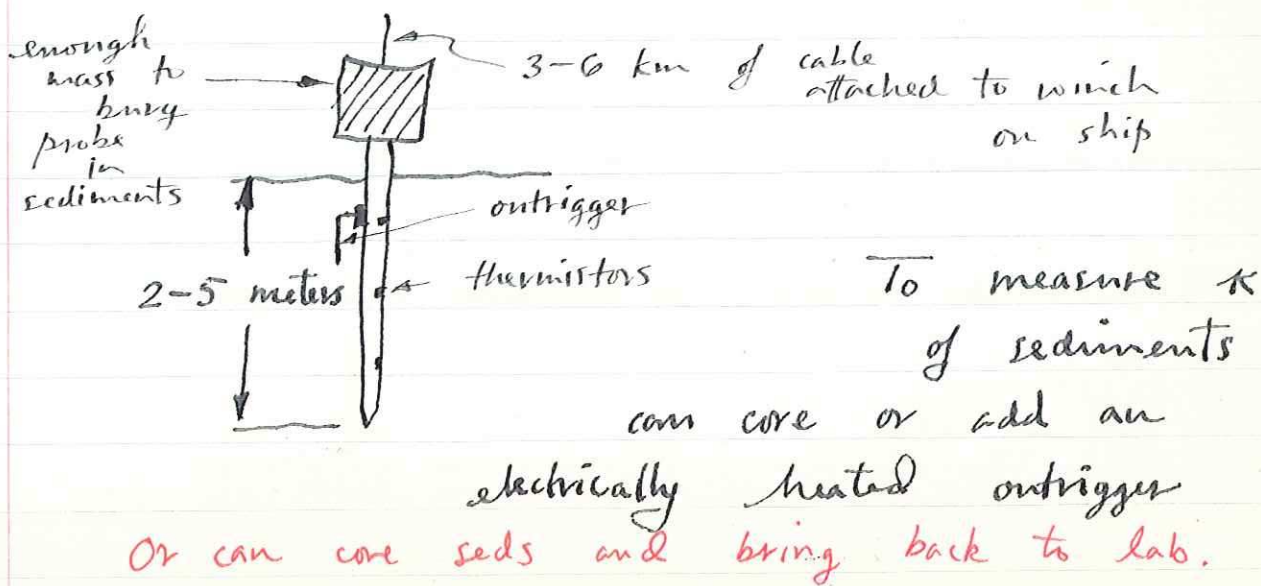 enough
mass to
bury
probe
in
sediments
3-6 km of cable
attached to winch
on ship
outrigger
thermistors
2-5 meters
To measure κ
of sediments
can core or add an
electrically heated outrigger
Or can core seds and bring back to lab.